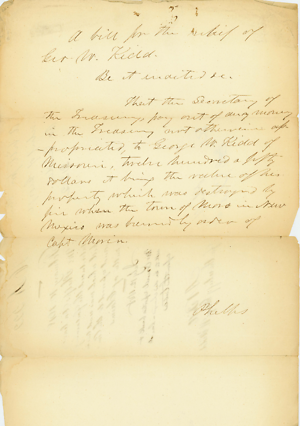 A bill for the relief of
Geo. W. Kidd.
Be it enacted &c.
That the Secretary of
the Treasury pay out of any money
in the Treasury not otherwise ap-
-propriated, to George W. Kidd of
Missouri, twelve hundred & fifty
dollars it being the value of his
property which was destroyed by
fire when the town of Moro in New
Mexico was burned by order of
Capt Morin
Phelps